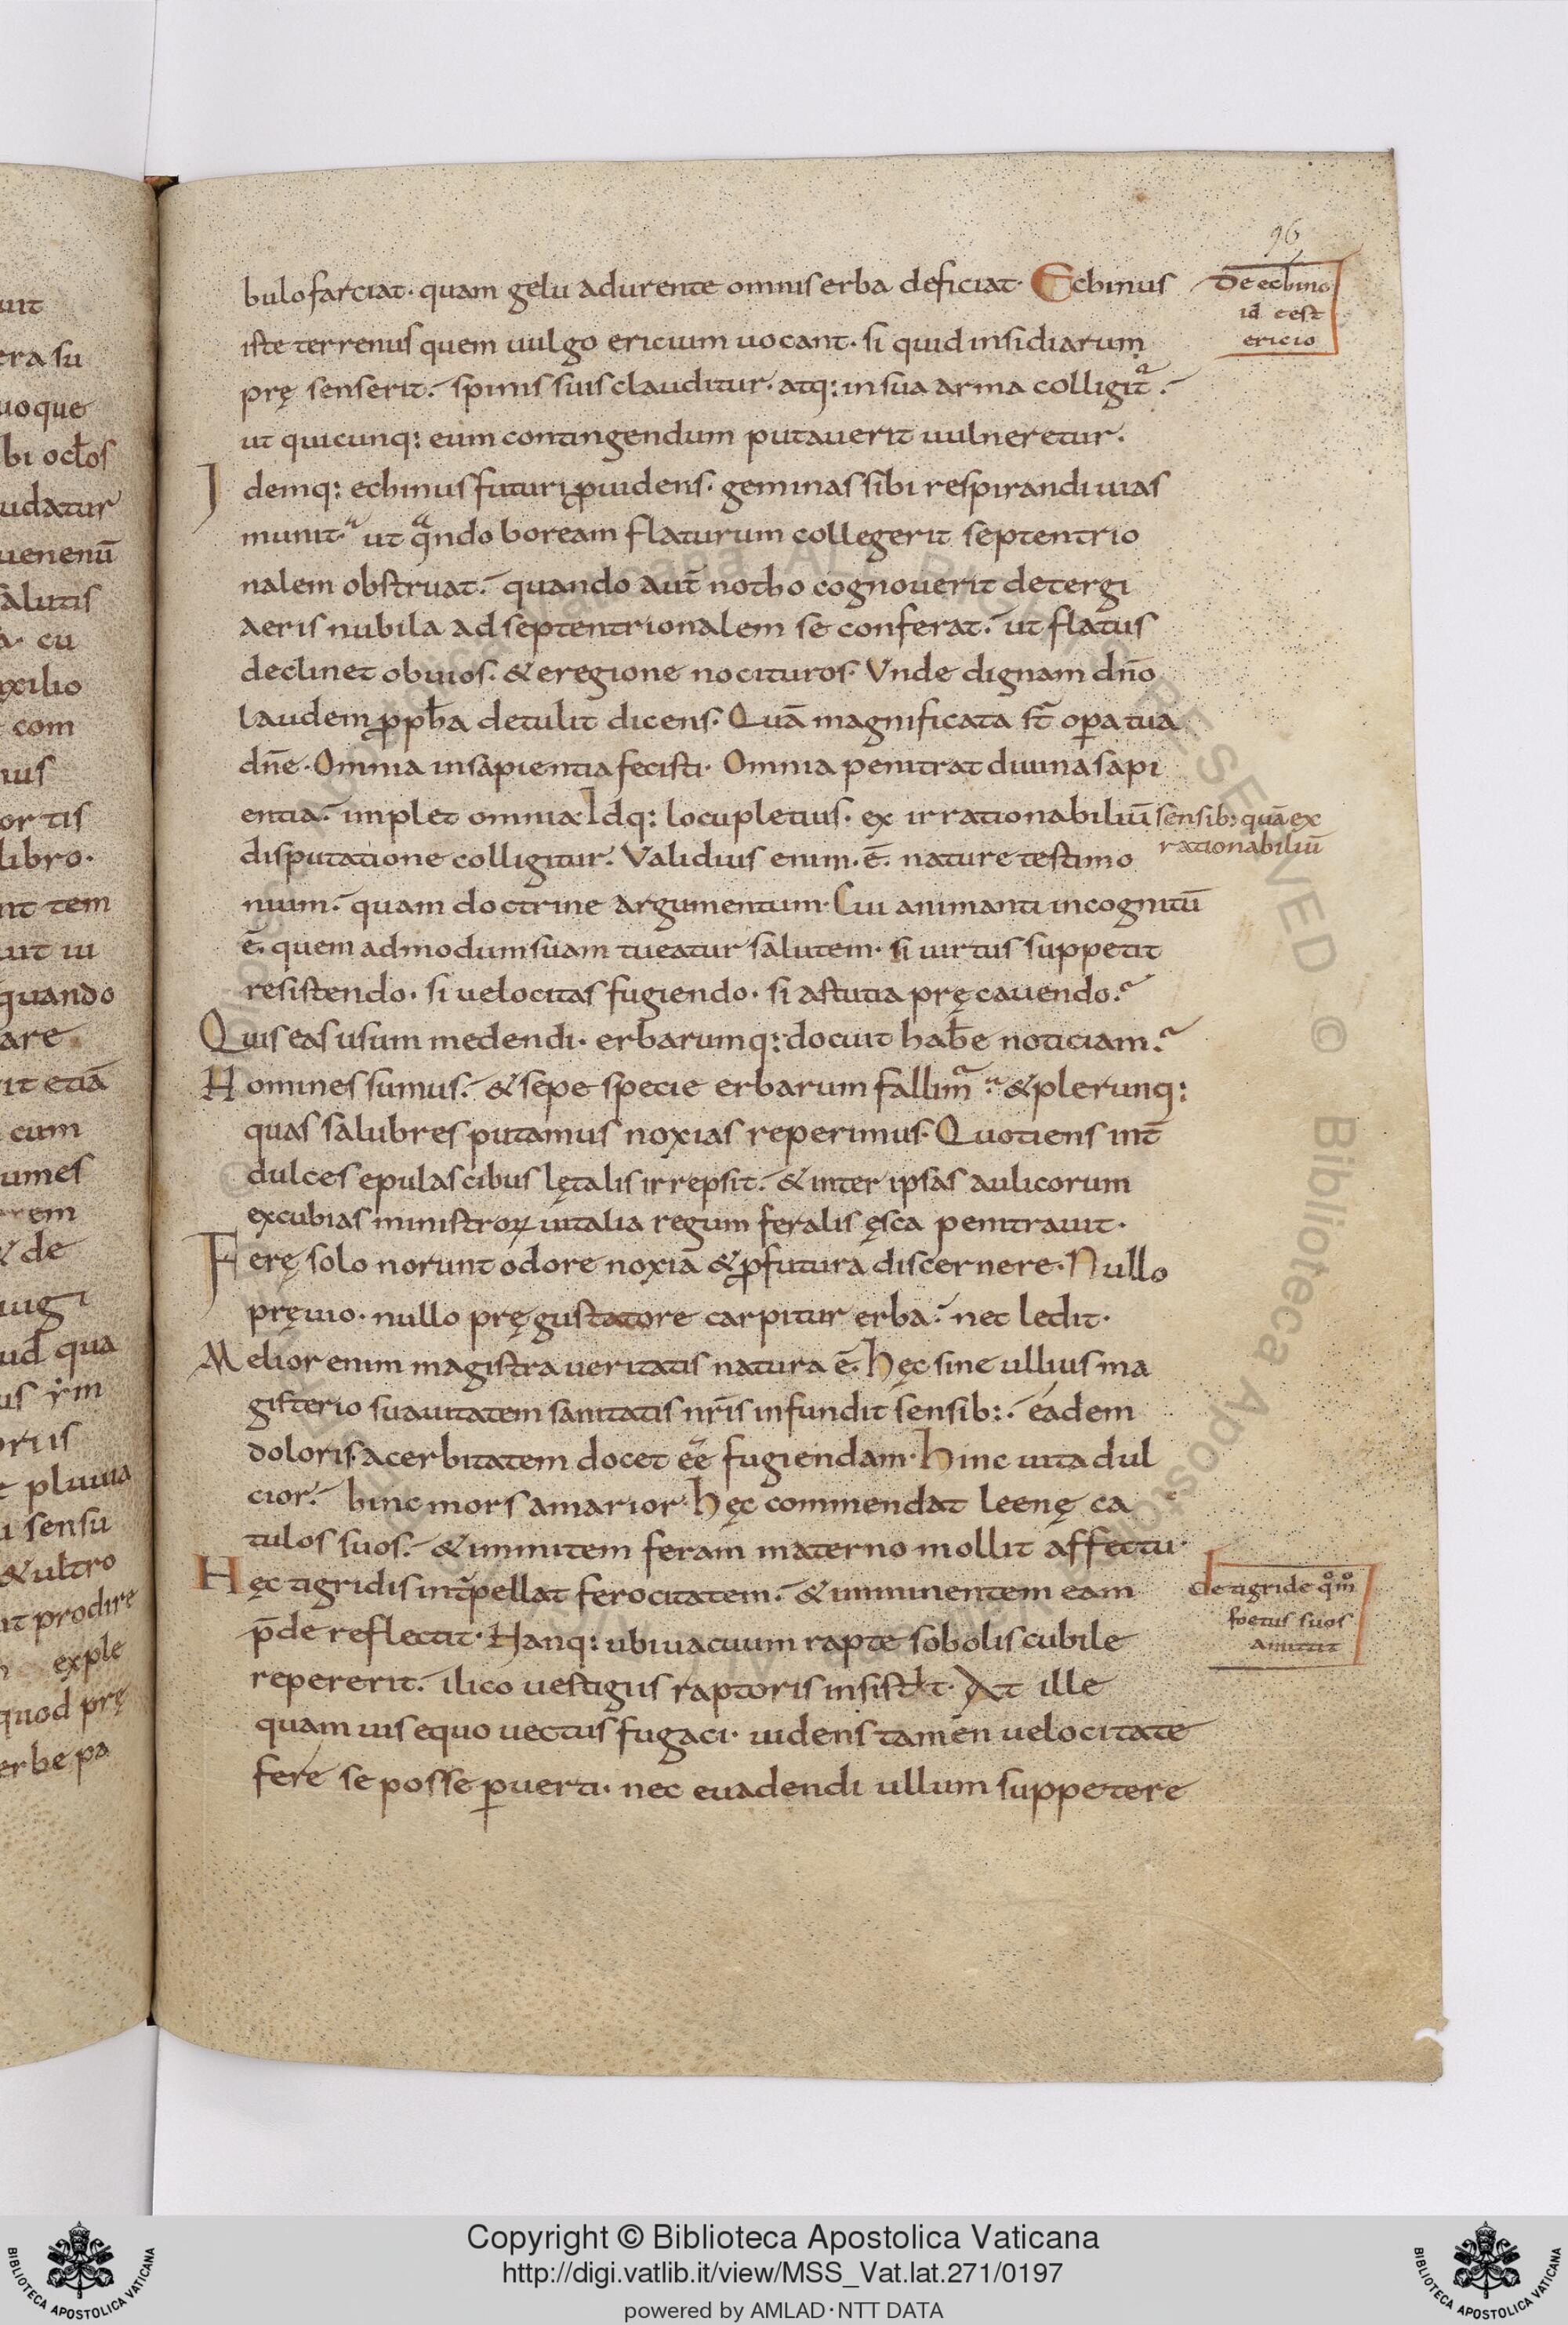 96
bulo farciat· quam gelu adurente omnis erba deficiat· Echinus
De echino
id est
ericio
iste terrenus quem uulgo ericium uocant· si quid insidiarum
prę senserit· spinis suis clauditur· atq: in sua arma colligit᷑·
ut quicunq: eum contingendum putauerit uulneretur·
Idemq: echinus futuri ꝓuidens· geminas sibi respirandi uias
munit· ut qͣndo boream flaturum collegerit septentrio
nalem obstruat· quando aut̄ notho cognouerit detergi
aeris nubila ad septentrionalem se conferat· ut flatus
declinet obuios· & e regione nocituros· Vnde dignam dn̄o
laudem ꝓph̄a detulit dicens· Quā magnificata st̄ oꝑa tua
dn̄e· Omnia in sapientia fecisti· Omnia penitrat diuina sapi
entia· implet omnia· Idq: locupletius· ex irrationabiliū sensib: quā ex
rationabiliū
disputatione colligitur· Validius enim· ē· nature testimo
nium· quam doctrine argumentum· Cui animanti incognitū
ē· quemadmodum suam tueatur salutem· si uirtus suppetit
resistendo· si uelocitas fugiendo· si astutia pręcauendo·
Quis eas usum medendi· erbarumq: docuit hab̄e noticiam·
Homines sumus· & sepe specie erbarum fallim᷑· & plerunq:
quas salubres putamus noxias reperimus· Quotiens int̄
dulces epulas cibus lętalis irrepsit· & inter ipsas aulicorum
excubias ministroꝝ uitalia regum feralis ęsca penitrauit·
Ferę solo norunt odore noxia & ꝓfutura discernere· Nullo
pręuio· nullo pręgustatore carpitur erba· nec ledit·
Melior enim magistra ueritatis natura ē· hęc sine ullius ma
gisterio suauitatem sanitatis nr̄is infundit sensib:· eadem
doloris acerbitatem docet eē fugiendam· hinc uita dul
cior· hinc mors amarior· hęc commendat leenę ca
tulos suos· & inmitem feram materno mollit affectu·
Hęc tigridis int̄pellat ferocitatem· & imminentem eam
de tigride qͦmͦ
foetus suos
amittit
p̄de reflectit· Hanq: ubi uacuum rapte sobolis cubile
repererit· ilico uestigiis raptoris insistit· At ille
quam uis equo uectus fugaci· uidens tamen uelocitate
fere se posse ꝑuerti· nec euadendi ullum suppetere
Copyright © Biblioteca Apostolica Vaticana
http://digi.vatlib.it/view/MSS_Vat.lat.271/0197
powered by AMLAD·NTT DATA